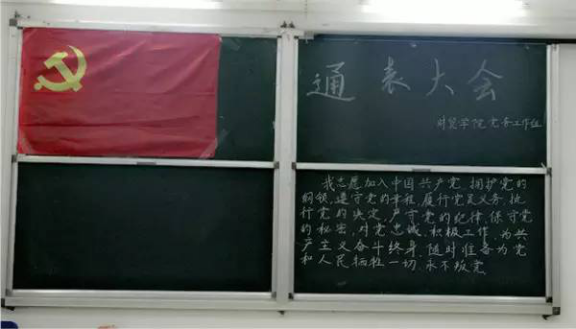 通表大会
财贸学院党务工作组
我志愿加入中国共产党，拥护党的
纲领，遵守党的章程，履行党员义务，执
行党的决定，严守党的纪律，保守党
的秘密，对党忠诚，积极工作，为共
产主义奋斗终身，随时准备为党
和人民牺牲一切，永不叛党